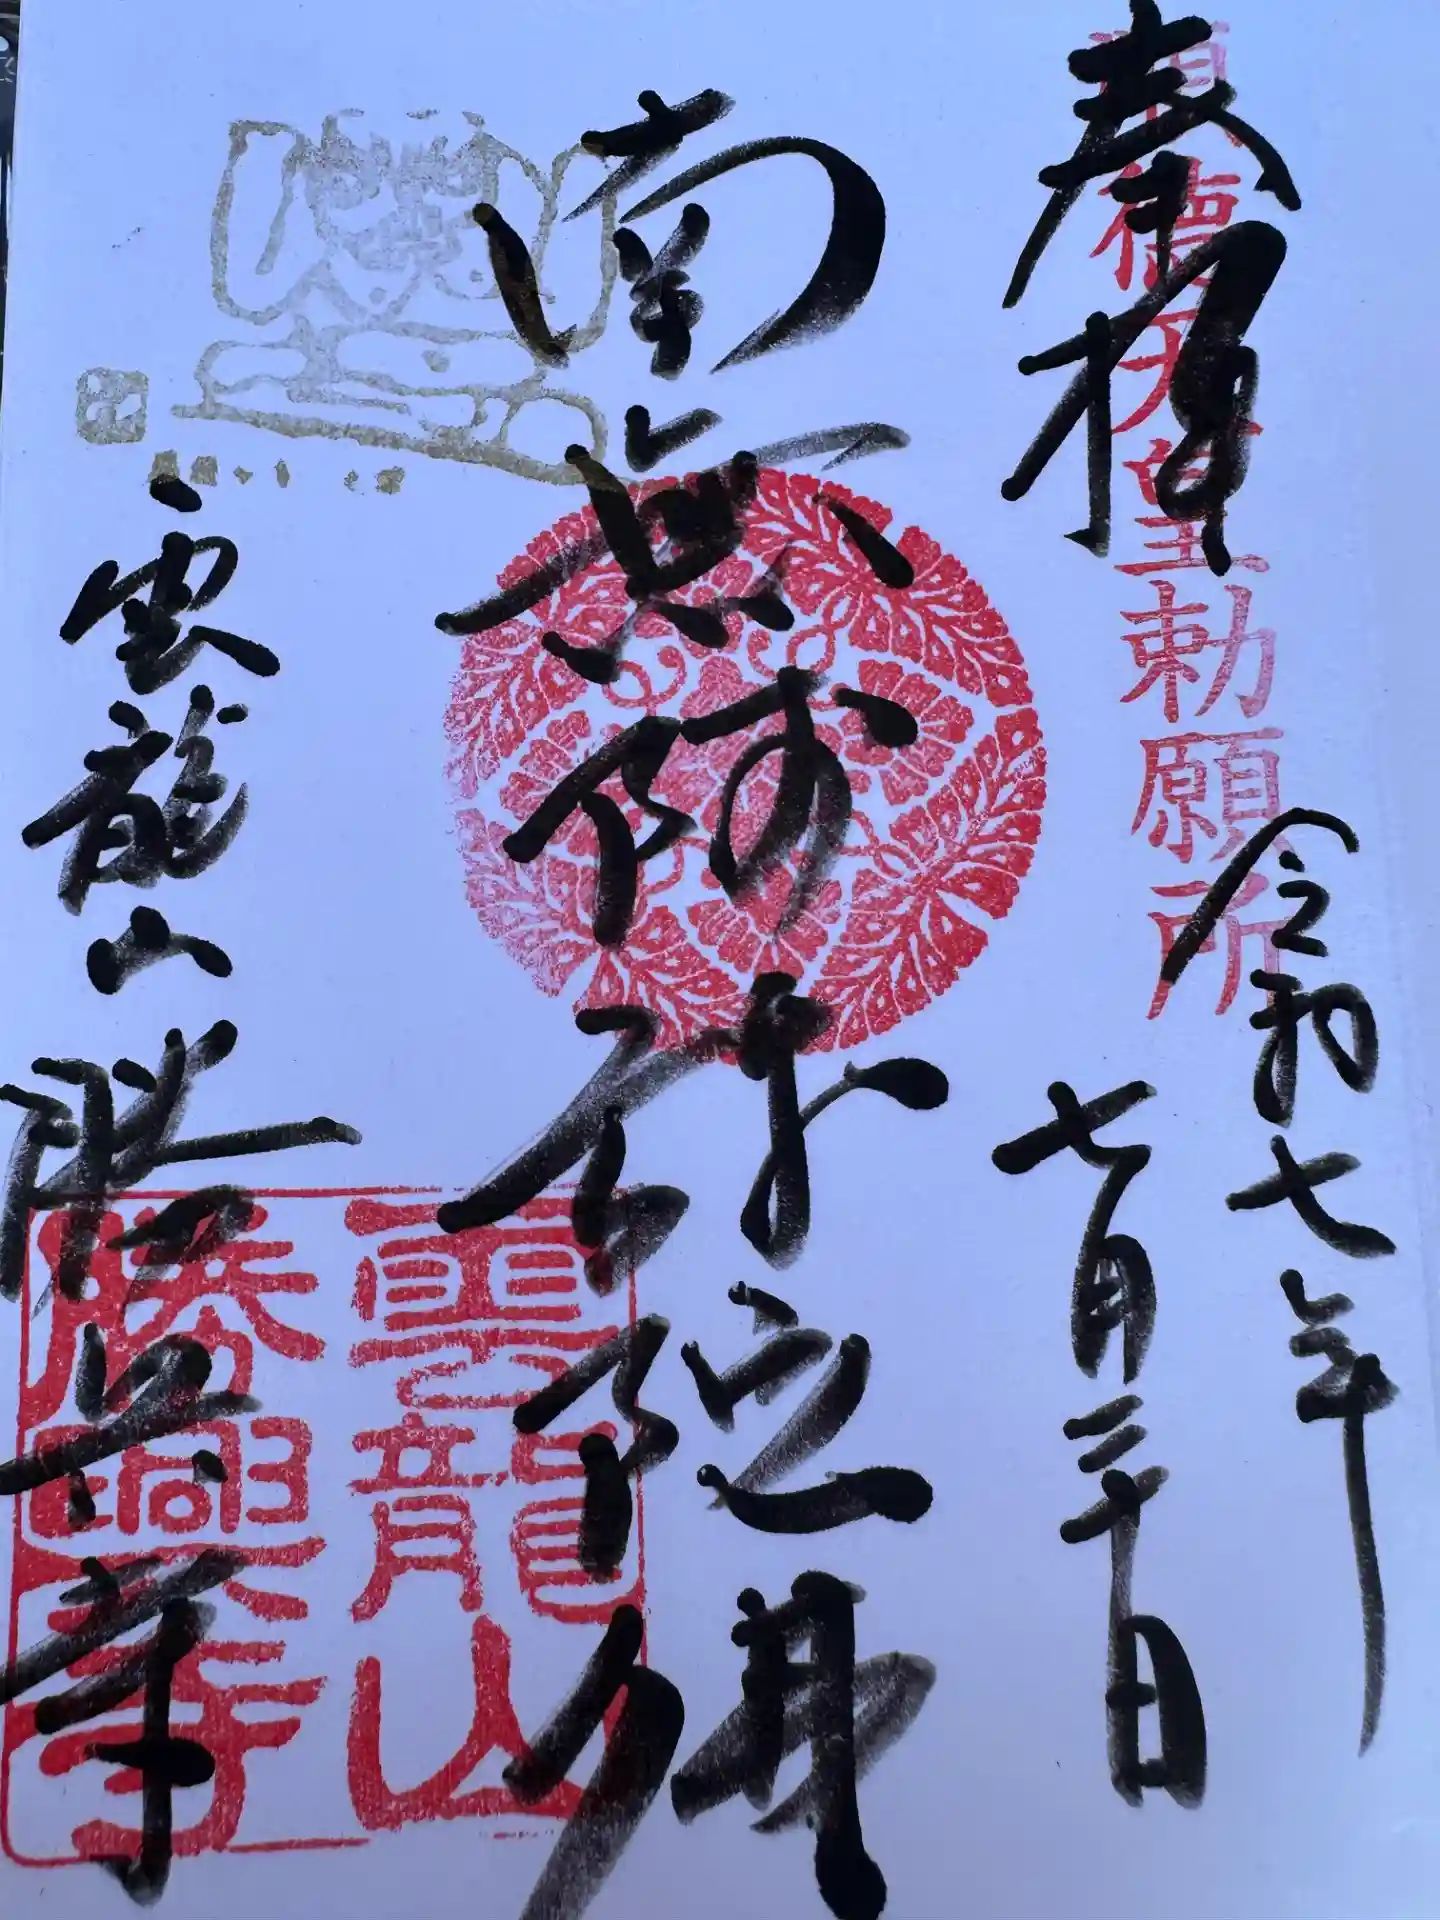 奉拝
順徳天皇勅願所
令和七年
七月三十日
南無阿弥陀佛
雲龍山勝興寺
雲龍山
勝興寺